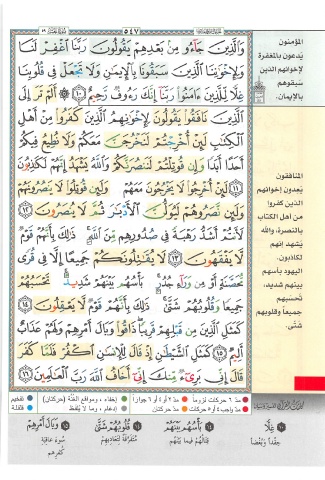 ٥٤٧
وَالَّذِينَ جَاءُو مِنْ بَعْدِهِمْ يَقُولُونَ رَبَّنَا اغْفِرْ لَنَا
وَلِإِخْوَانِنَا الَّذِينَ سَبَقُونَا بِالْإِيمَانِ وَلَا تَجْعَلْ فِي قُلُوبِنَا
غِلًّا لِلَّذِينَ ءَامَنُوا رَبَّنَا إِنَّكَ رَءُوفٌ رَحِيمٌ ١٠ أَلَمْ تَرَ إِلَى
الَّذِينَ نَافَقُوا يَقُولُونَ لِإِخْوَانِهِمُ الَّذِينَ كَفَرُوا مِنْ أَهْلِ
الْكِتَابِ لَئِنْ أُخْرِجْتُمْ لَنَخْرُجَنَّ مَعَكُمْ وَلَا نُطِيعُ فِيكُمْ
أَحَدًا أَبَدًا وَإِنْ قُوتِلْتُمْ لَنَنْصُرَنَّكُمْ وَاللَّهُ يَشْهَدُ إِنَّهُمْ لَكَاذِبُونَ
١١ لَئِنْ أُخْرِجُوا لَا يَخْرُجُونَ مَعَهُمْ وَلَئِنْ قُوتِلُوا لَا يَنْصُرُونَهُمْ
وَلَئِنْ نَصَرُوهُمْ لَيُوَلُّنَّ الْأَدْبَارَ ثُمَّ لَا يُنْصَرُونَ ١٢
لَأَنْتُمْ أَشَدُّ رَهْبَةً فِي صُدُورِهِمْ مِنَ اللَّهِ ذَلِكَ بِأَنَّهُمْ قَوْمٌ
لَا يَفْقَهُونَ ١٣ لَا يُقَاتِلُونَكُمْ جَمِيعًا إِلَّا فِي قُرًى
مُحَصَّنَةٍ أَوْ مِنْ وَرَاءِ جُدُرٍ بَأْسُهُمْ بَيْنَهُمْ شَدِيدٌ تَحْسَبُهُمْ
جَمِيعًا وَقُلُوبُهُمْ شَتَّى ذَلِكَ بِأَنَّهُمْ قَوْمٌ لَا يَعْقِلُونَ ١٤
كَمَثَلِ الَّذِينَ مِنْ قَبْلِهِمْ قَرِيبًا ذَاقُوا وَبَالَ أَمْرِهِمْ وَلَهُمْ عَذَابٌ
أَلِيمٌ ١٥ كَمَثَلِ الشَّيْطَانِ إِذْ قَالَ لِلْإِنْسَانِ اكْفُرْ فَلَمَّا كَفَرَ
قَالَ إِنِّي بَرِيءٌ مِنْكَ إِنِّي أَخَافُ اللَّهَ رَبَّ الْعَالَمِينَ ١٦
المؤمنون
يَدعون بالمغفرة
لإخوانهم الذين
سَبقوهم
بالإيمان.
المنافقون
يَعِدون إخوانهم
الذين كفروا
من أهل الكتاب
بالنصرة، والله
يَشهد إنهم
لكاذبون.
اليهود بأسهم
بينهم شديد،
تَحسَبهم
جميعاً وقلوبهم
شتّى.
مدّ ٦ حركات لزوماً مدّ ٢ أو ٤ أو ٦ جوازاً إخفاء، ومواقع الغُنَّة (حركتان) تفخيم
مدّ واجب ٤ أو ٥ حركات مدّ حركتان إدغام، وما لا يُلفظ قلقلة
١٠ غِلًّا
حِقداً وبُغضاً
١٤ بَأْسُهُمْ بَيْنَهُمْ
قِتالُهُمْ فيما بَيْنَهُمْ
١٤ قُلُوبُهُمْ شَتَّى
مُتَفَرِّقَةٌ لِتَعادِيهِمْ
١٥ وَبَالَ أَمْرِهِمْ
سُوءَ عَاقِبَةِ
كُفْرِهِمْ